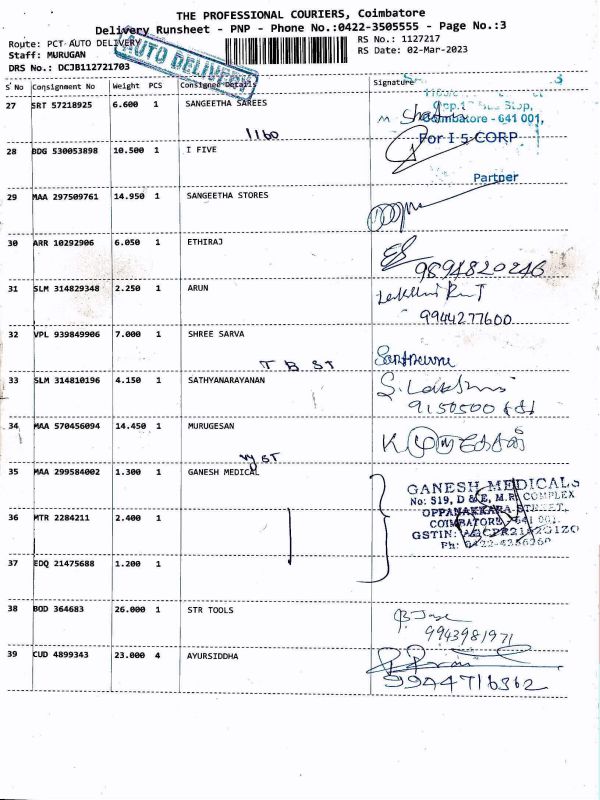 THE PROFESSIONAL COURIERS, Coimbatore
Delivery Runsheet - PNP - Phone No.:0422-3505555 - Page No.:3
Route: PCT AUTO DELIVERY
RS No.: 1127217
Staff: MURUGAN
RS Date: 02-Mar-2023
DRS No.: DCJB112721703
AUTO DELIVERY
S No Consignment No Weight PCS Consignee Details Signature
27 SRT 57218925 6.600 1 SANGEETHA SAREES
Coimbatore - 641 001,
1160
For I 5 CORP
28 BDG 530053898 10.500 1 I FIVE
Partner
29 MAA 297509761 14.950 1 SANGEETHA STORES
30 ARR 10292906 6.050 1 ETHIRAJ
9894820246
31 SLM 314829348 2.250 1 ARUN
9944277600
32 VPL 939849906 7.000 1 SHREE SARVA
T B ST
33 SLM 314810196 4.150 1 SATHYANARAYANAN
S. Lakshmi
9150500
34 MAA 570456094 14.450 1 MURUGESAN
K முருகேசன்
35 MAA 299584002 1.300 1 GANESH MEDICAL
GANESH MEDICALS
No: 519, D & E, M.R. COMPLEX
OPPANAKKARA STREET,
COIMBATORE - 641 001.
GSTIN:
Ph: 0422-
36 MTR 2284211 2.400 1
37 EDQ 21475688 1.200 1
38 BOD 364683 26.000 1 STR TOOLS
9943981971
39 CUD 4899343 23.000 4 AYURSIDDHA
9944716362